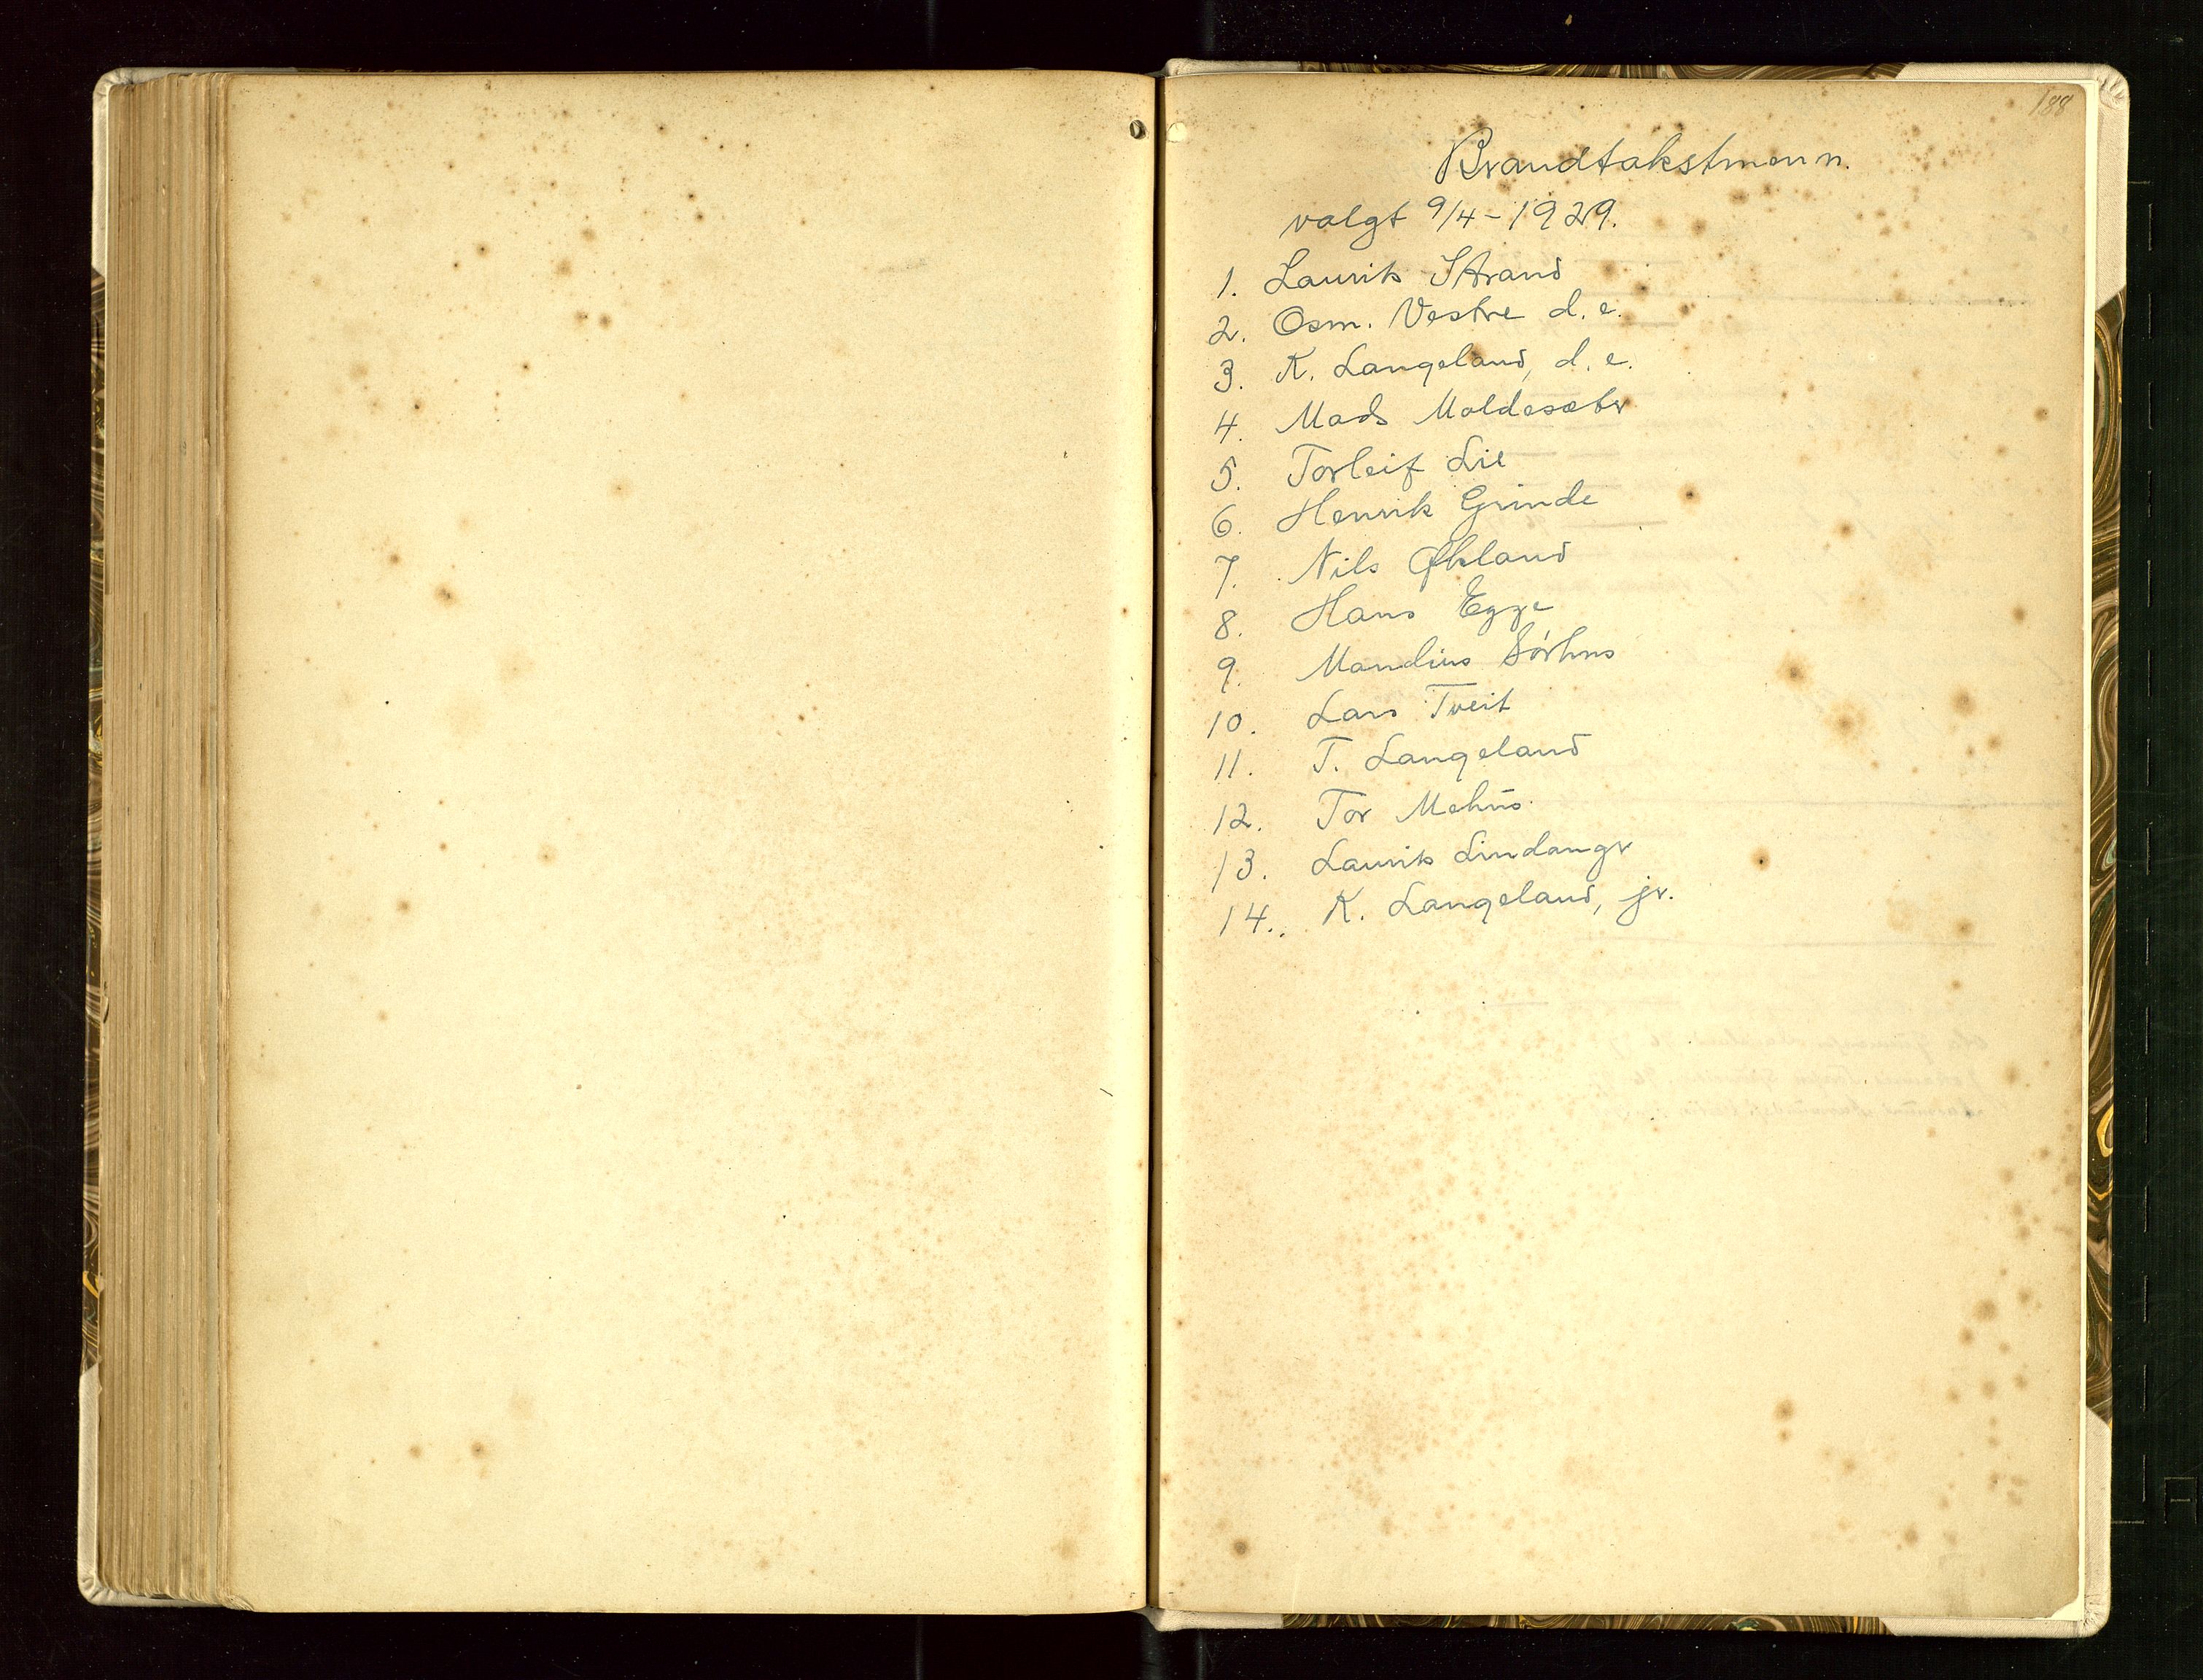 188
Brandtakstmenn.
valgt 9/4-1929.
1. Laurits Strand
2. Osm. Vestre d.e.
3. K. Langeland, d.e.
4. Mads Moldesæter
5. Torleif Lie
6. Henrik Grinde
7. Nils Økland
8. Hans Egge
9. Mandius Sørhus
10. Lars Tveit
11. T. Langeland
12. Tor Mehus.
13. Laurits Lindanger
14. K. Langeland, jr.